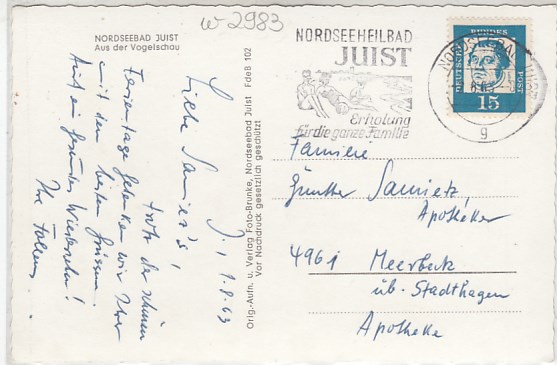 NORDSEEBAD JUIST
Aus der Vogelschau
w-2983
NORDSEEHEILBAD
JUIST
Erholung
für die ganze Familie
DEUTSCHE BUNDESPOST
15
NORDSEEBAD JUIST
g
J., 1.8.63
Liebe Samietz's!
Trotz der schönen
Ferientage gedenken wir Ihrer
mit den besten Grüssen.
Auf ein gesundes Wiedersehn!
Ihre
Orig.-Aufn. u. Verlag Foto-Brunke, Nordseebad Juist FdeB 102
Vor Nachdruck gesetzlich geschützt
Familie
Günther Samietz
Apotheker
4961 Meerbeck
üb. Stadthagen
Apotheke